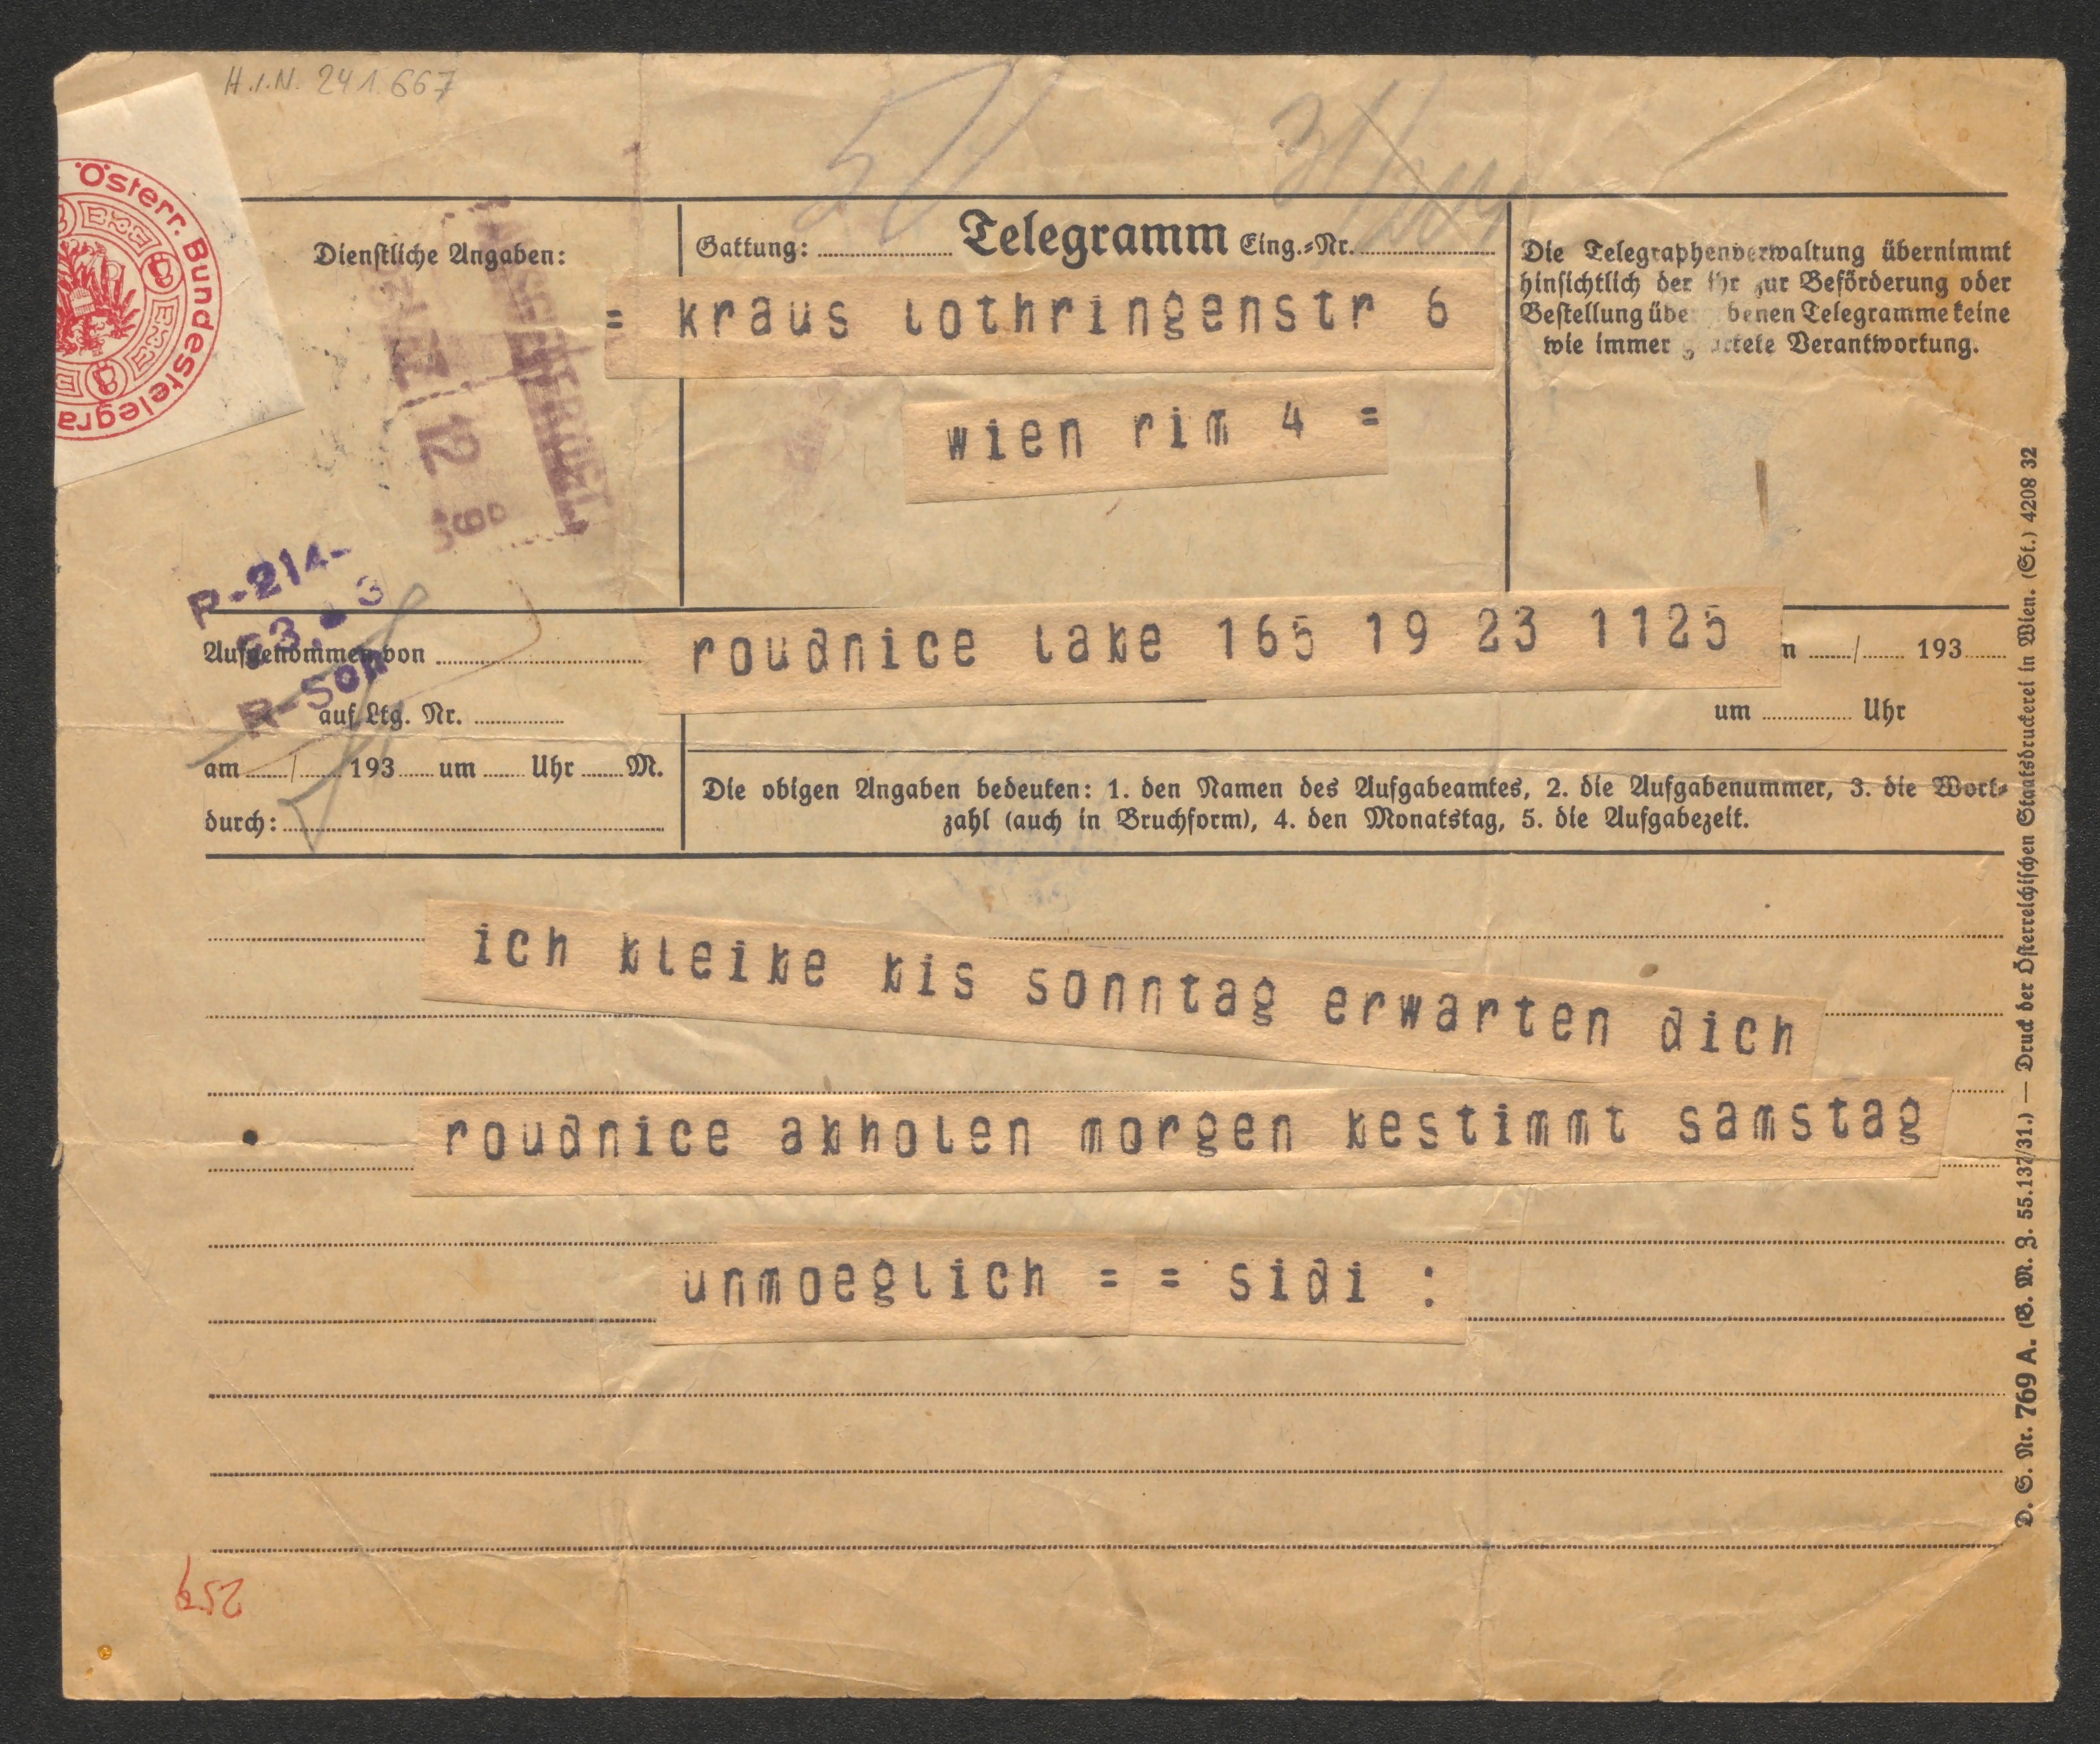 H.I.N. 241.667
Österr. Bundestelegra
Dienstliche Angaben:
Gattung: Telegramm Eing.-Nr.
Die Telegraphenverwaltung übernimmt
hinsichtlich der ihr zur Beförderung oder
Bestellung übe benen Telegramme keine
wie immer Verantwortung.
= kraus lothringenstr 6
wien rim 4 =
12
R-214-
Aufgenommen von
roudnice labe 165 19 23 1125
n / 193
auf Ltg. Nr.
um Uhr
am / 193 um Uhr M.
durch:
Die obigen Angaben bedeuten: 1. den Namen des Aufgabeamtes, 2. die Aufgabenummer, 3. die Wort-
zahl (auch in Bruchform), 4. den Monatstag, 5. die Aufgabezeit.
ich bleibe bis sonntag erwarten dich
roudnice abholen morgen bestimmt samstag
unmoeglich = = sidi :
259
D. S. Nr. 769 A. (B. M. Z. 55.137/31.) — Druck der Österreichischen Staatsdruckerei in Wien. (St.) 4208 32